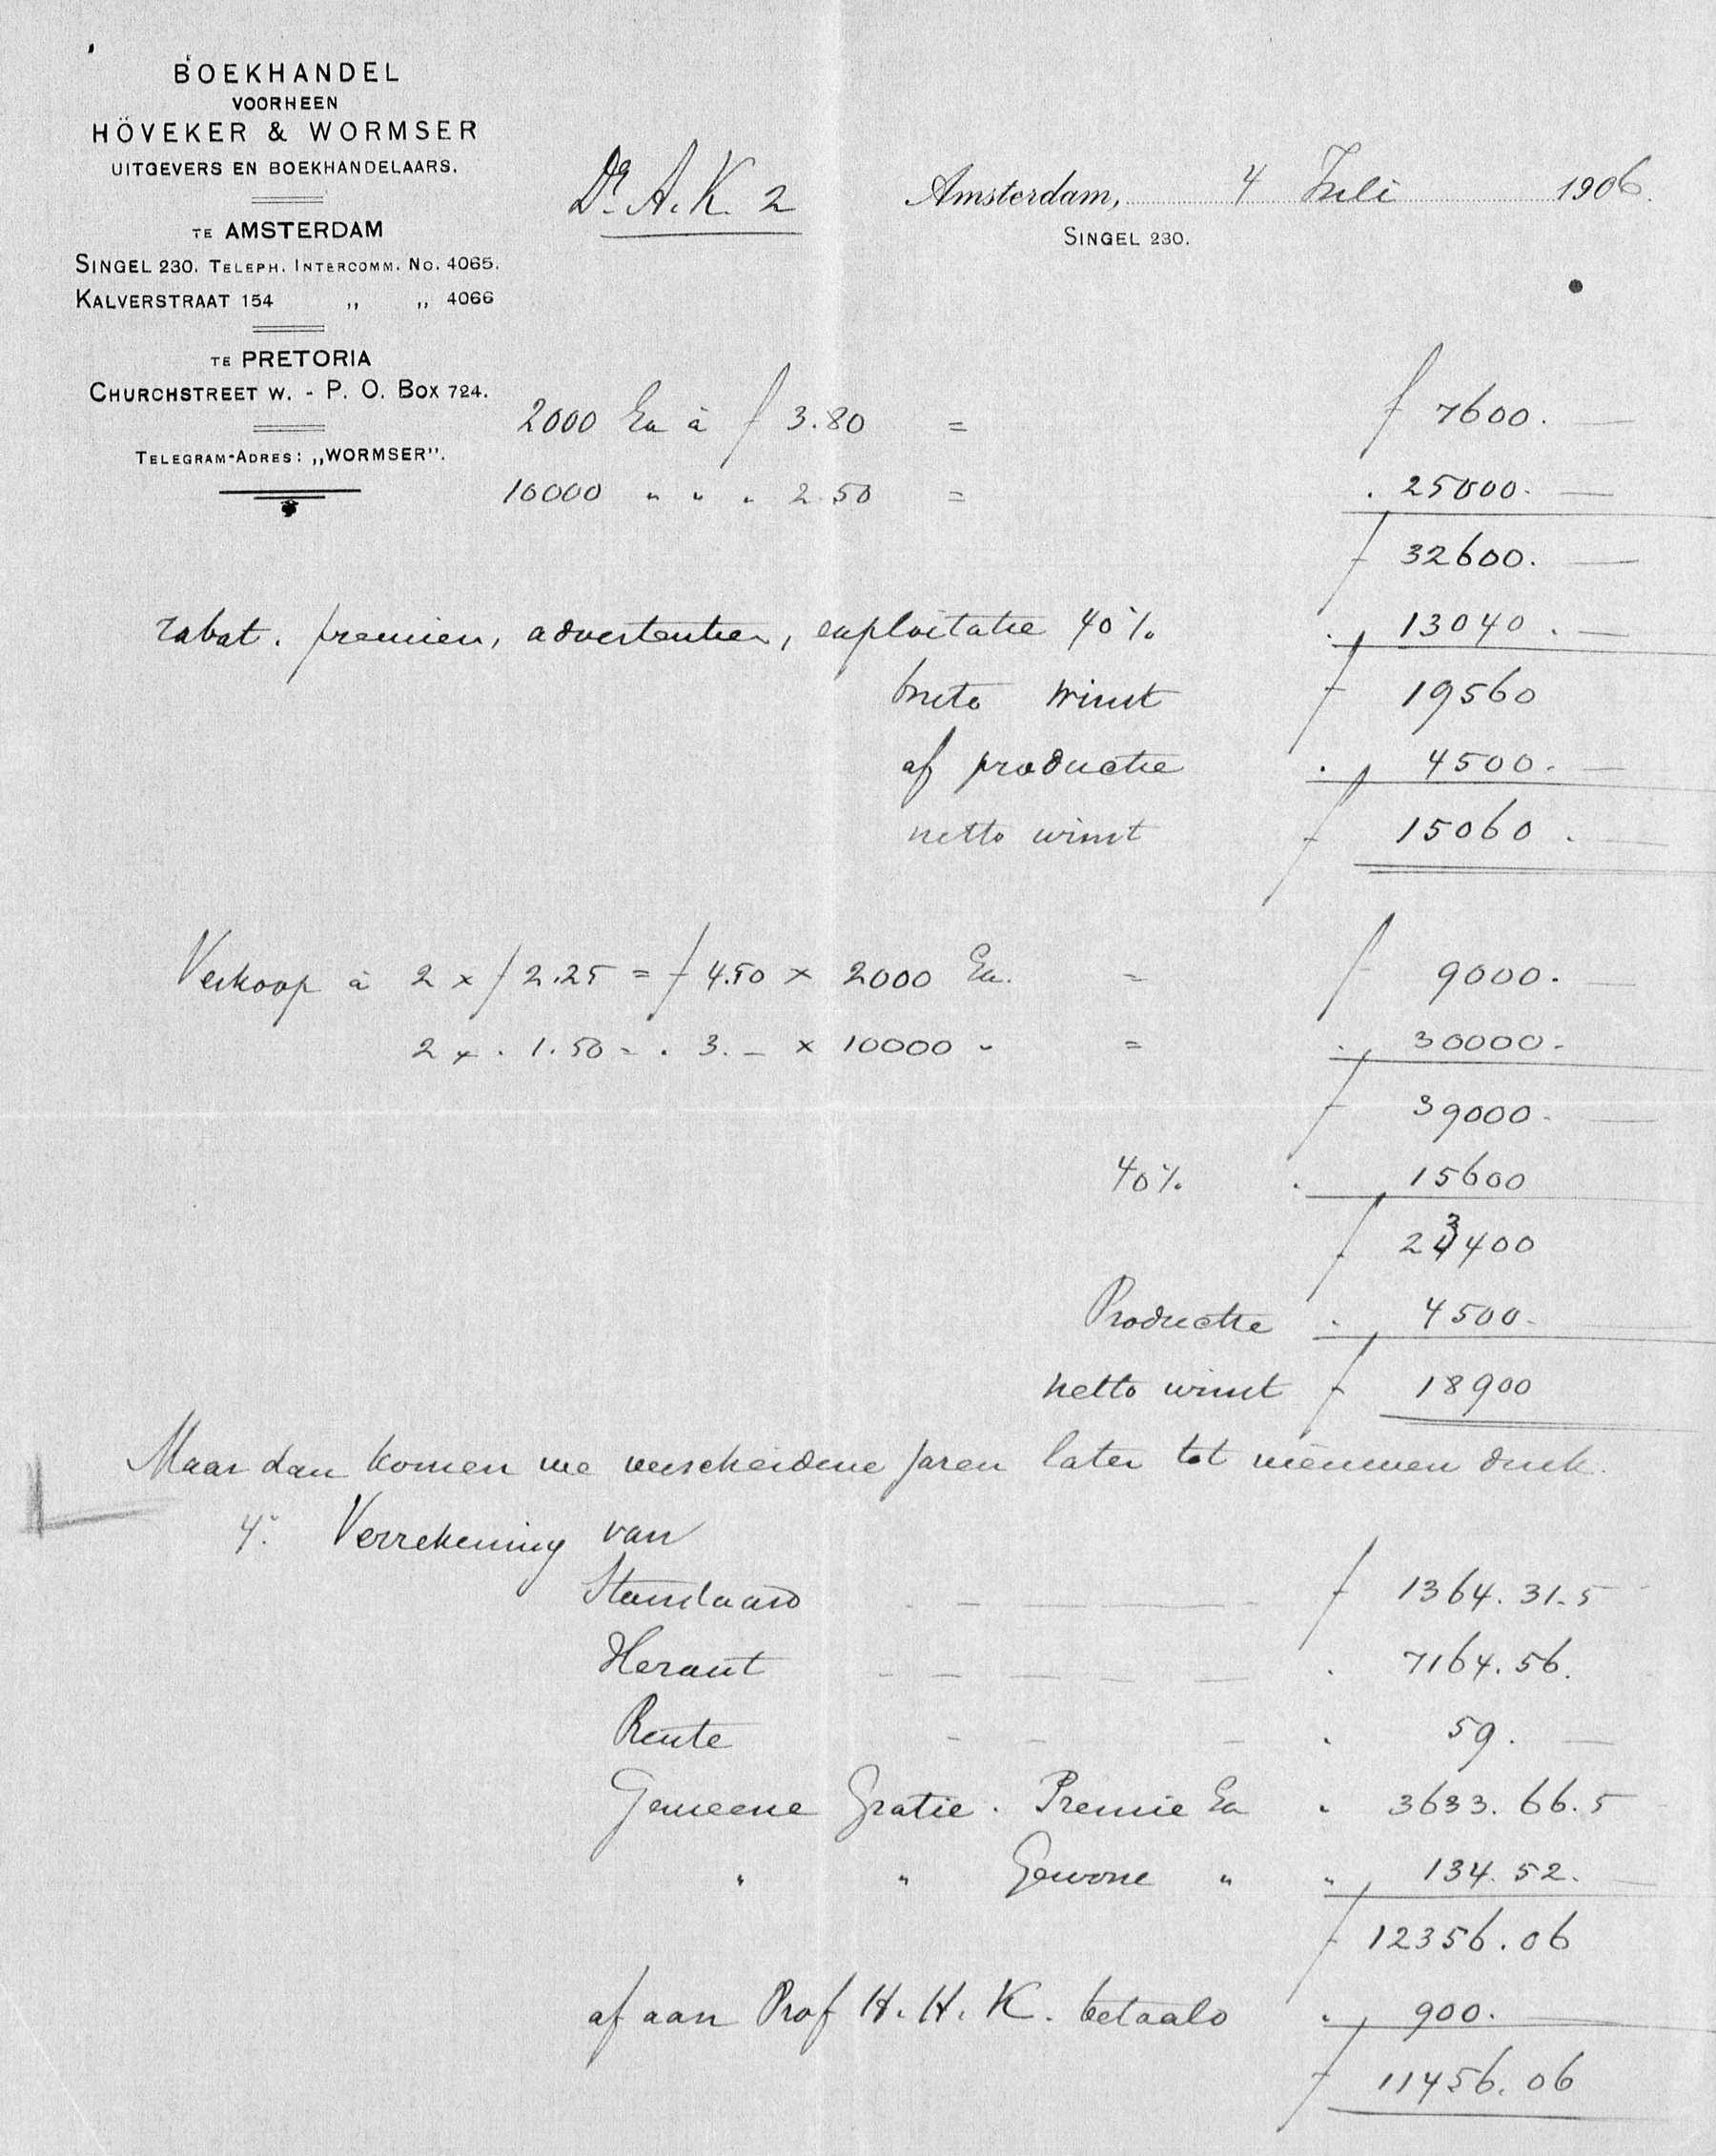 BOEKHANDEL
VOORHEEN
HÖVEKER & WORMSER
UITGEVERS EN BOEKHANDELAARS.
TE AMSTERDAM
SINGEL 230. TELEPH. INTERCOMM. No. 4065.
KALVERSTRAAT 154 ,, ,, 4066
TE PRETORIA
CHURCHSTREET W. - P. O. BOX 724.
TELEGRAM-ADRES: ,,WORMSER''.
Dr. A. K. 2
Amsterdam, 4 Juli 1906.
SINGEL 230.
2000 Ex à f 3.80 = f 7600. —
10000 " " . 2.50 = . 25000. —
f 32600. —
rabat. premien, advertentien, exploitatie 40% . 13040. —
bruto winst f 19560
af productie . 4500. —
netto winst f 15060. —
Verkoop à 2 x f 2.25 = f 4.50 x 2000 Ex. = f 9000. —
2 x . 1.50 = . 3. — x 10000 " = . 30000.
f 39000. —
40% . 15600
f 23400
Productie . 4500.
netto winst f 18900
Maar dan komen we verscheidene jaren later tot nieuwen druk.
4º. Verrekening van
Standaard f 1364.31.5
Heraut . 7164.56.
Rente . 59. —
Gemeene Gratie. Premie Ex . 3633.66.5
" " Gewone " " 134.52.
f 12356.06
af aan Prof H. H. K. betaald . 900. —
f 11456.06